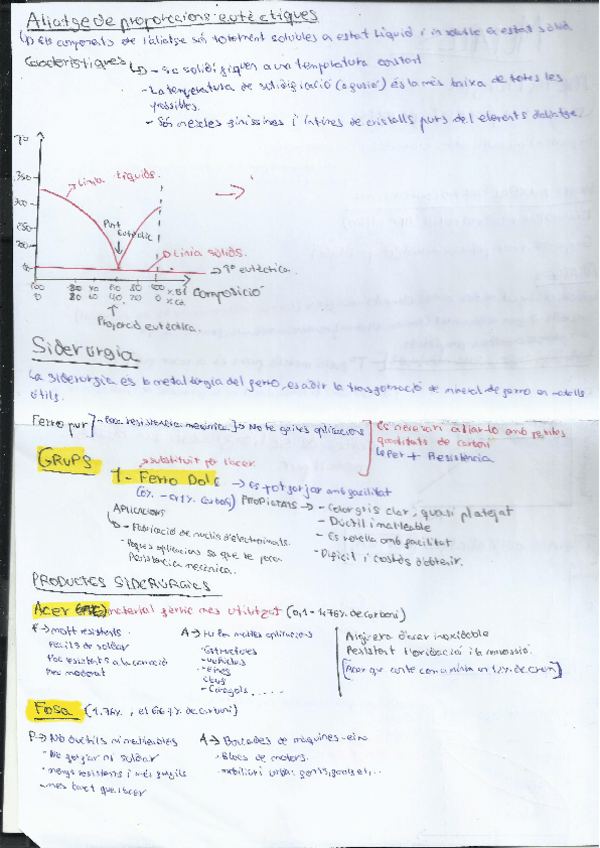 Aliatge de proporcions eutèctiques
Els components de l'aliatge són totalment solubles en estat líquid i insoluble en estat sòlid
Característiques → - Se solidifiquen a una temperatura constant
- La temperatura de solidificació (o fusió) és la més baixa de totes les
possibles.
- Són mescles finíssimes i íntimes de cristalls purs del elements d'aliatge.
Línia líquids.
350
300
Punt
eutèctic
250
200
Línia sòlids.
Tª eutèctica.
100 80 40 60 80 100 % Bi Composició
0 80 60 40 20 0 % Cd
Proporció eutèctica.
Siderúrgia
La siderurgia es la metal·lúrgia del ferro, es a dir la transformació de mineral de ferro en metalls
útils.
Ferro pur - Poca resistència mecànica No te gaires aplicacions
Es necessari aliar-lo amb petites
quantitats de carboni
Per + Resistència
GRUPS
substituit per l'acer.
1- Ferro Dolç → es pot forjar amb facilitat
(0% - 0,1% Carboni) PROPIETATS → - Color gris clar, quasi platejat
- Dúctil i mal·leable
- Es rovella amb facilitat
- Difícil i costós d'obtenir.
APLICACIONS
- Fabricació de nuclis d'electroimants.
- Poques aplicacions ja que te poca
Resistència mecànica.
PRODUCTES SIDERÚRGICS
Acer material fèrric mes utilitzat (0,1 - 1,76% de carboni)
P → molt resistents
Fàcils de soldar
Poc resistents a la corrosió
Preu moderat
A → Hi ha moltes aplicacions
- Estructures
- Vehicles
- Eines
Claus
- Caragols, .....
Anomera d'acer inoxidable
Resistent l'oxidació i la corrosió.
[Acer que conte com a mínim un 12% de crom]
Fosa (1.76% , el 6,67% de carboni)
P → No dúctils ni mal·leables
- No forjar ni soldar
- menys resistens i més fràgils
- mes barat que l'acer
A → Bancades de màquines-eina
- Blocs de motors.
- mobiliari urbà: fonts, fanals,...